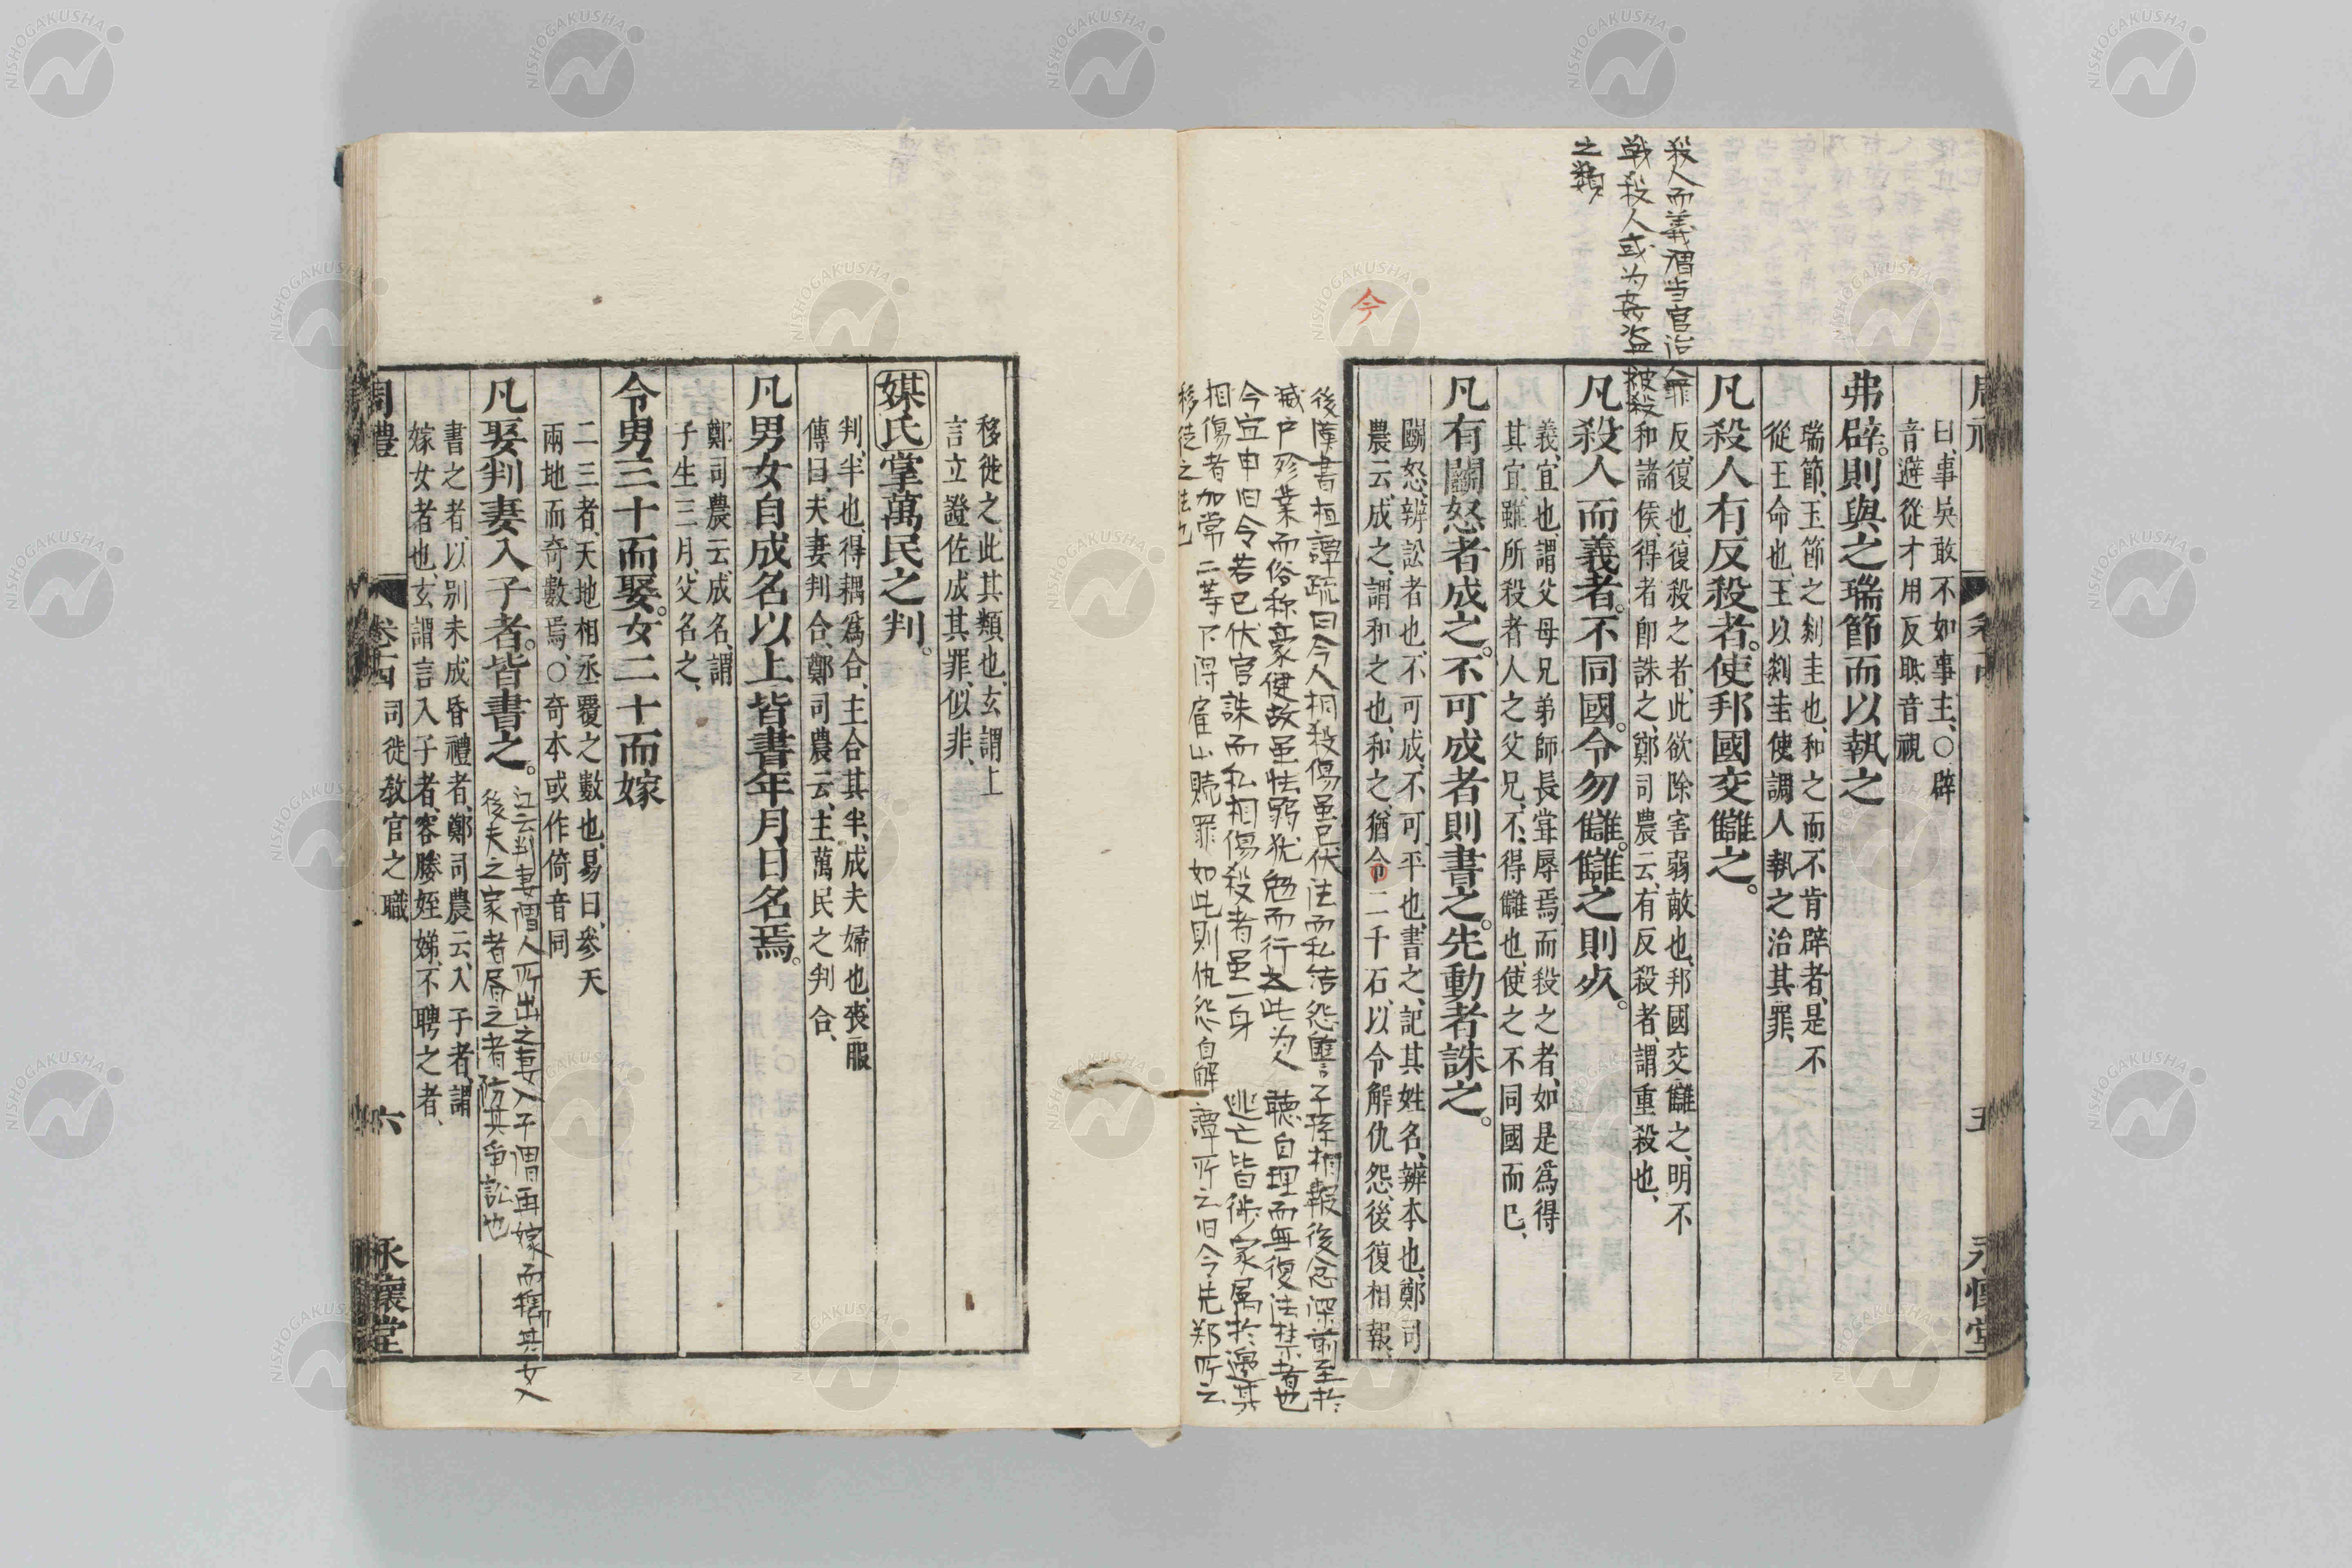 殺人而義謂当官治罪
戦殺人或为姦盗被殺
之類
今
曰、事吳敢不如事主、○辟
音避從才用反眡音視
弗辟。則與之瑞節而以執之
瑞節、玉節之剡圭也、和之而不肯辟者、是不
從王命也、王以剡圭使調人執之治其罪、
凡殺人有反殺者。使邦國交讎之。
反、復也、復殺之者、此欲除害弱敵也、邦國交讎之、明不
和諸侯、得者卽誅之、鄭司農云、有反殺者、謂重殺也、
凡殺人而義者。不同國。令勿讎。讎之則死。
義、宜也、謂父母兄弟師長嘗辱焉、而殺之者、如是爲得
其宜、雖所殺者人之父兄、不得讎也、使之不同國而已、
凡有鬭怒者成之。不可成者則書之。先動者誅之。
鬭怒、辨訟者也、不可成、不可平也、書之、記其姓名、辨本也、鄭司
農云、成之、謂和之也、和之、猶令二千石、以令解仇怨、後復相報、
後漢書桓譚疏曰今人相殺傷虽已伏法而私结怨讐子孫相報後忿深前至於
滅户殄業而俗称豪健故虽怯弱犹勉而行之此为人聴自理而無復法禁者也
今宜申旧令若已伏官誅而私相傷殺者虽一身逃亡皆徙家属於邊其
相傷者加常二等不得雇山贖罪如此則仇怨自解譚所云旧令先郑所云
移徙之法也
移徙之、此其類也、玄謂上
言立證佐成其罪、似非、
媒氏掌萬民之判。
判、半也、得耦爲合、主合其半、成夫婦也、喪服
傳曰、夫妻判合、鄭司農云、主萬民之判合、
凡男女自成名以上皆書年月日名焉。
鄭司農云、成名、謂
子生三月、父名之、
令男三十而娶。女二十而嫁
二三者、天地相丞覆之數也、易曰、參天
兩地而奇數焉、○奇本或作倚音同
凡娶判妻入子者。皆書之。
江云判妻謂人所出之妻入子謂再嫁而攜其女入
後夫之家者屬之者防其争訟也
書之者、以別未成昏禮者、鄭司農云、入子者、謂
嫁女者也、玄謂言入子者、容媵姪娣、不聘之者、
周禮 卷十四 司徒教官之職 六 永懷堂